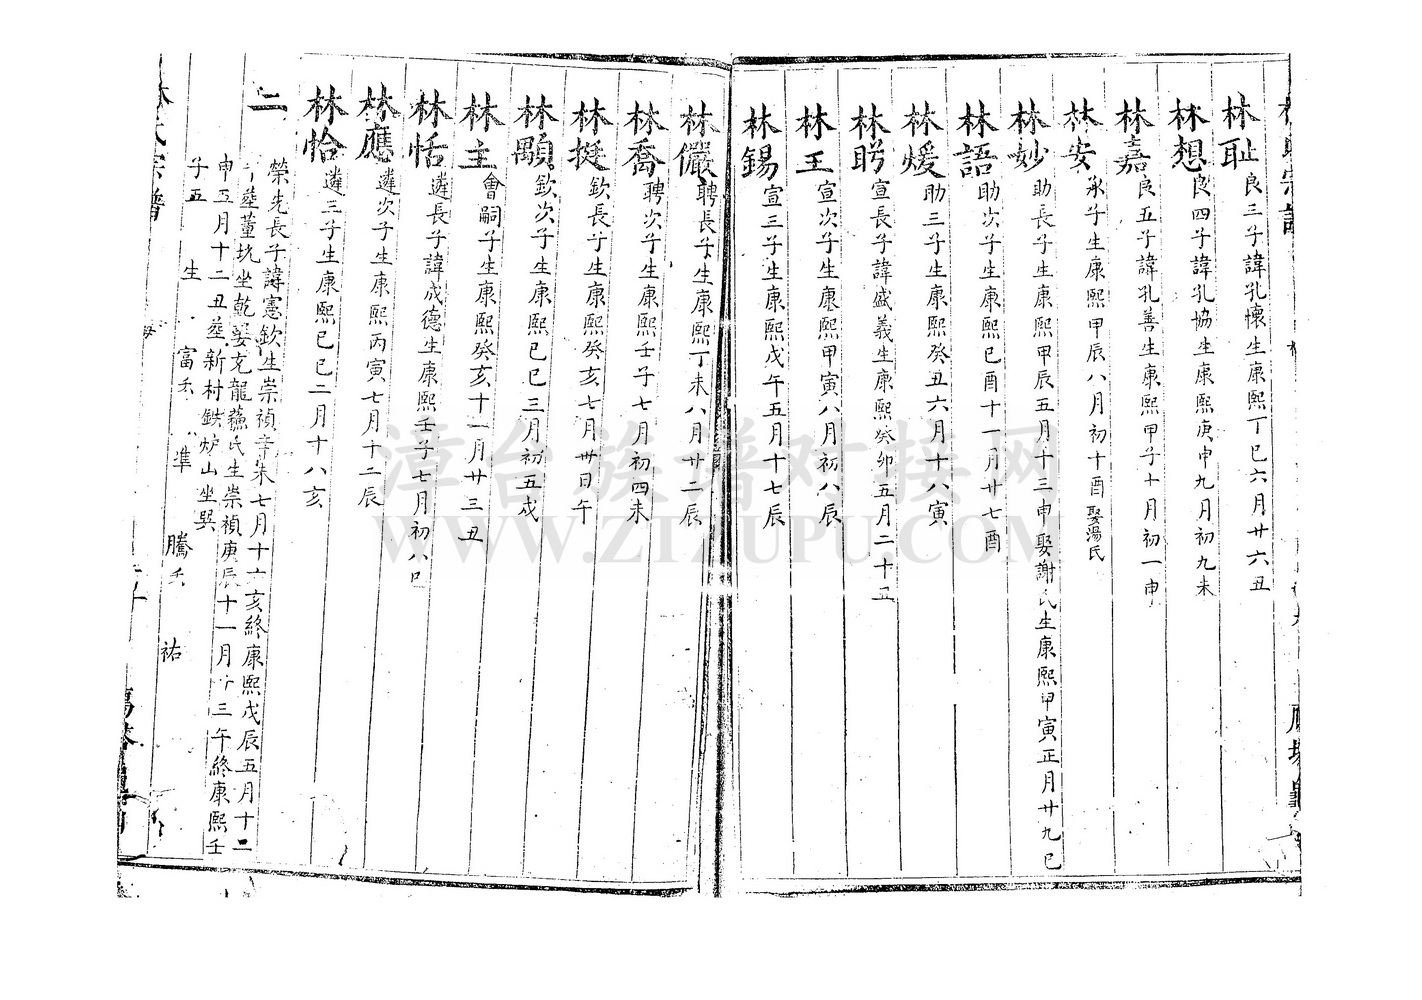 林耻 良三子諱孔懷生康熙丁巳六月廿六丑
林想 良四子諱孔協生康熙庚申九月初九未
林嘉 良五子諱孔善生康熙甲子十月初一申
林安 承子生康熙甲辰八月初十酉娶湯氏
林妙 助長子生康熙甲辰五月十三申娶謝氏生康熙甲寅正月廿九巳
林語 助次子生康熙己酉十一月廿七酉
林煖 助三子生康熙癸丑六月十八寅
林昁 宣長子諱盛義生康熙癸卯五月二十丑
林王 宣次子生康熙甲寅八月初八辰
林錫 宣三子生康熙戊午五月十七辰
林儼 聘長子生康熙丁未八月廿二辰
林喬 聘次子生康熙壬子七月初四未
林挺 欽長子生康熙癸亥七月卅日午
林顯 欽次子生康熙己巳三月初五戌
林主 會嗣子生康熙癸亥十一月廿三丑
林恬 遴長子諱成德生康熙壬子七月初八巳
林應 遴次子生康熙丙寅七月十二辰
林恰 遴三子生康熙己巳二月十八亥
二 榮先長子諱憲欽生崇禎辛未七月十六亥終康熙戊辰五月十二
葬董坑坐乾娶克龍蘇氏生崇禎庚辰十一月十三午終康熙壬
申五月十二丑葬新村鉄炉山坐巽
子五 生 富 準 騰 祐
林氏宗譜
漳台族谱对接网
WWW.ZTZUPU.COM